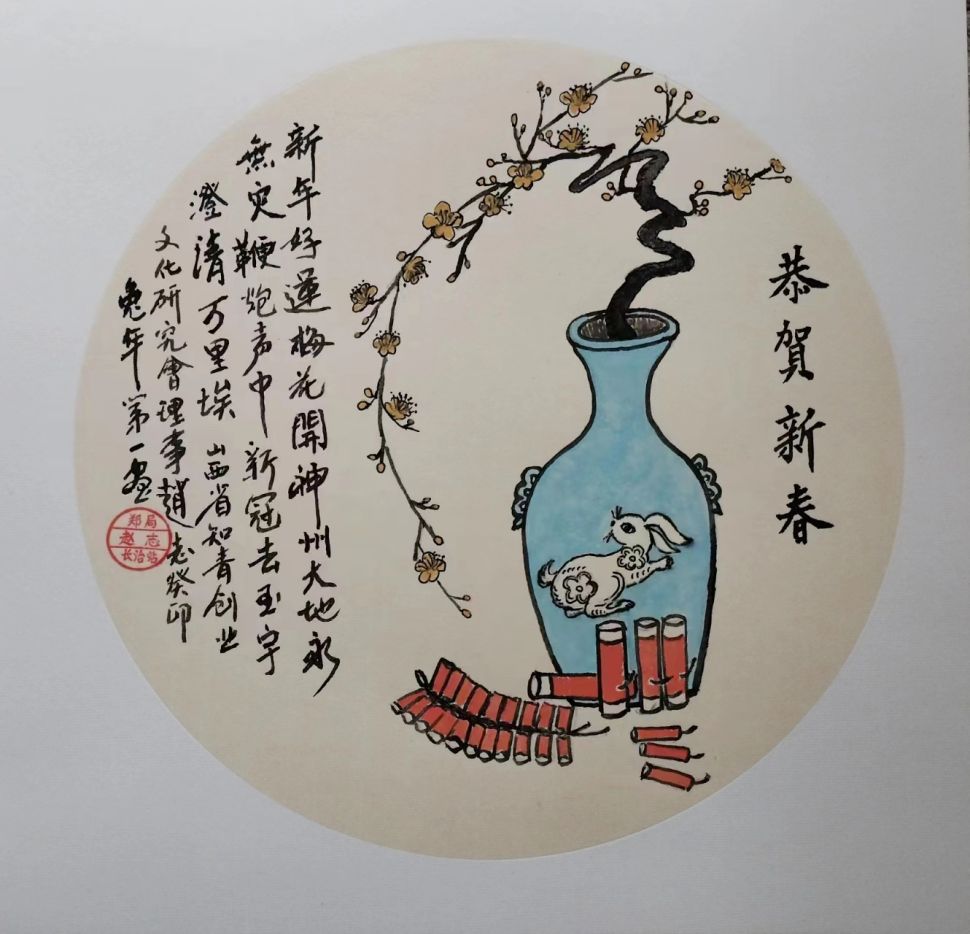 恭賀新春
新年好運梅花開神州大地永
無灾鞭炮声中新冠去玉宇
澄清万里埃山西省知青创业
文化研究會理事趙志癸卯
兔年第一画
郑局
赵志
长治站